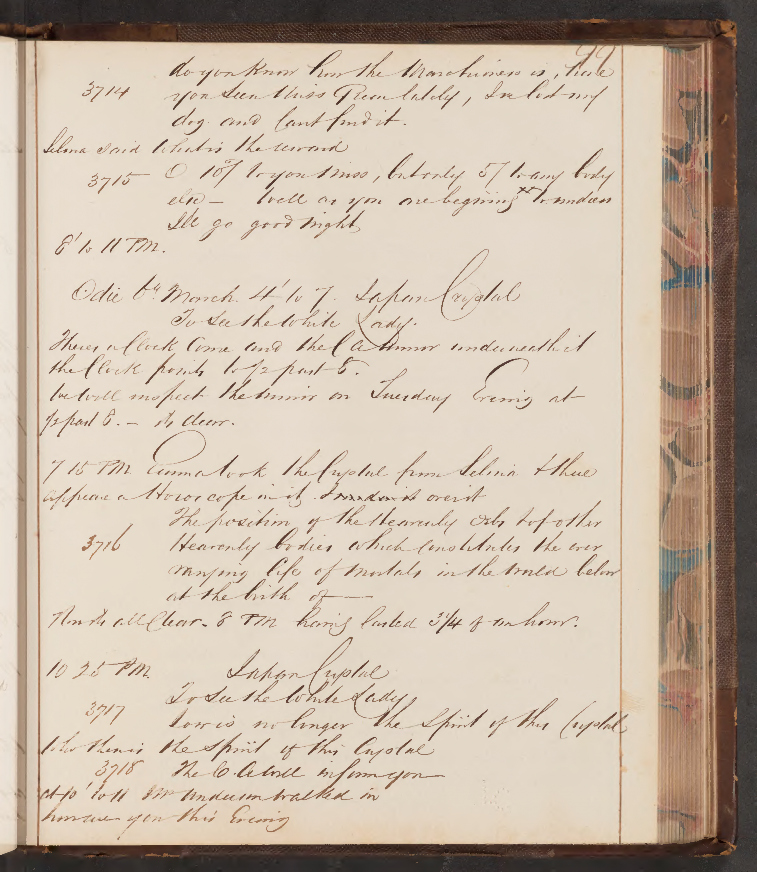 99
do you know how the Marchioness is, have
3714 you seen Miss lately, I've lost my
dog and can't find it.
Selina said What is the reward
3715 O 10/ to you Miss, but only 5/ to any body
else — Well as you are begining to
I'll go good night
8' to 11 PM.
Odie 6th March 4' to 7. Japan Crystal
To see the White Lady.
Theres a Clock Come and the C A mirror underneath it
the Clock points to 1/2 past 8.
We will inspect the mirror on Tuesday Evening at
1/2 past 8. — its clear.
7 15 PM Emma took the Crystal from Selina & there
appears a Horoscope in it over it
The position of the Heavenly orbs & of other
3716 Heavenly bodies which constitutes the ever
varying life of mortals in the world below
at the birth of —
Now its all Clear. 8 PM having lasted 3/4 of an hour.
10 25 PM. Japan Crystal
To see the White Lady
3717 is no longer the Spirit of this Crystal
Who then is the Spirit of this Crystal
3718 The C. A. will inform you
at 10' to 11 Mr Anderson walked in
how are you this Evening